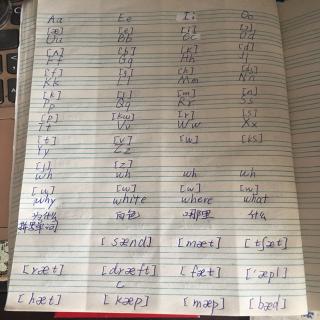 Aa Ee Ii Oo
[æ] [e] [i] [ɔ]
Uu Bb Cc Dd
[ʌ] [b] [k] [d]
Ff Gg Hh Jj
[f] [g] [h]
Kk Ll Mm Nn
[k] [l] [m] [n]
Pp Qq Rr Ss
[p] [kw] [r] [s]
Tt Vv Ww Xx
[t] [v] [w] [ks]
Yy Zz
[j] [z]
wh wh wh wh
[w] [w] [w] [w]
why white where what
为什么 白色 哪里 什么
[sænd] [mæt] [tʃæt]
[ræt] [dræft] [fæt] ['æpl]
[hæt] [kæp] [mæp] [bæd]